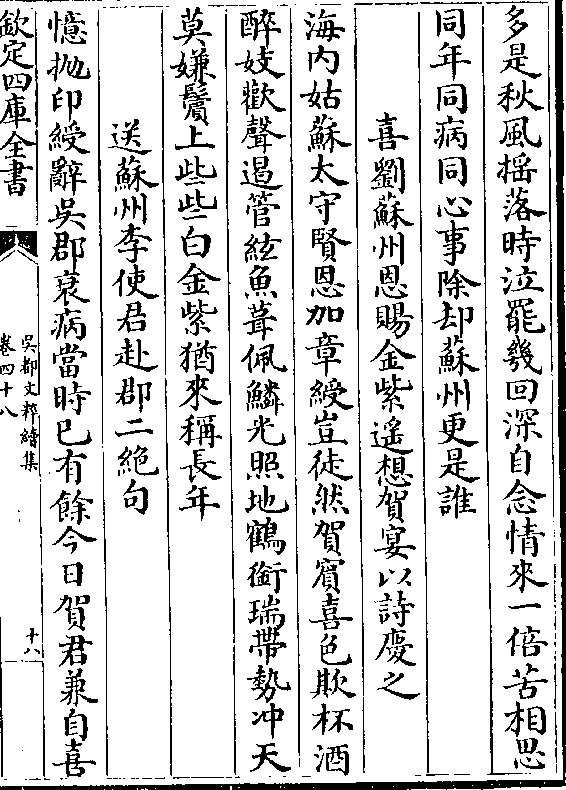 多是秋風揺落時泣罷幾回深自念情來一倍苦相思
同年同病同心事除却蘇州更是誰
喜劉蘇州恩賜金紫遥想賀宴以詩慶之
海内姑蘇太守賢恩加章綬豈徒然賀賓喜色欺杯酒
醉妓歡聲遏管絃魚葺佩鱗光照地鶴銜瑞帶勢冲天
莫嫌鬢上些些白金紫猶來稱長年
送蘇州李使君赴郡二絶句
憶抛印綬辭吳郡衰病當時已有餘今日賀君兼自喜
欽定四庫全書
吳都文粹續集
卷四十八
十八